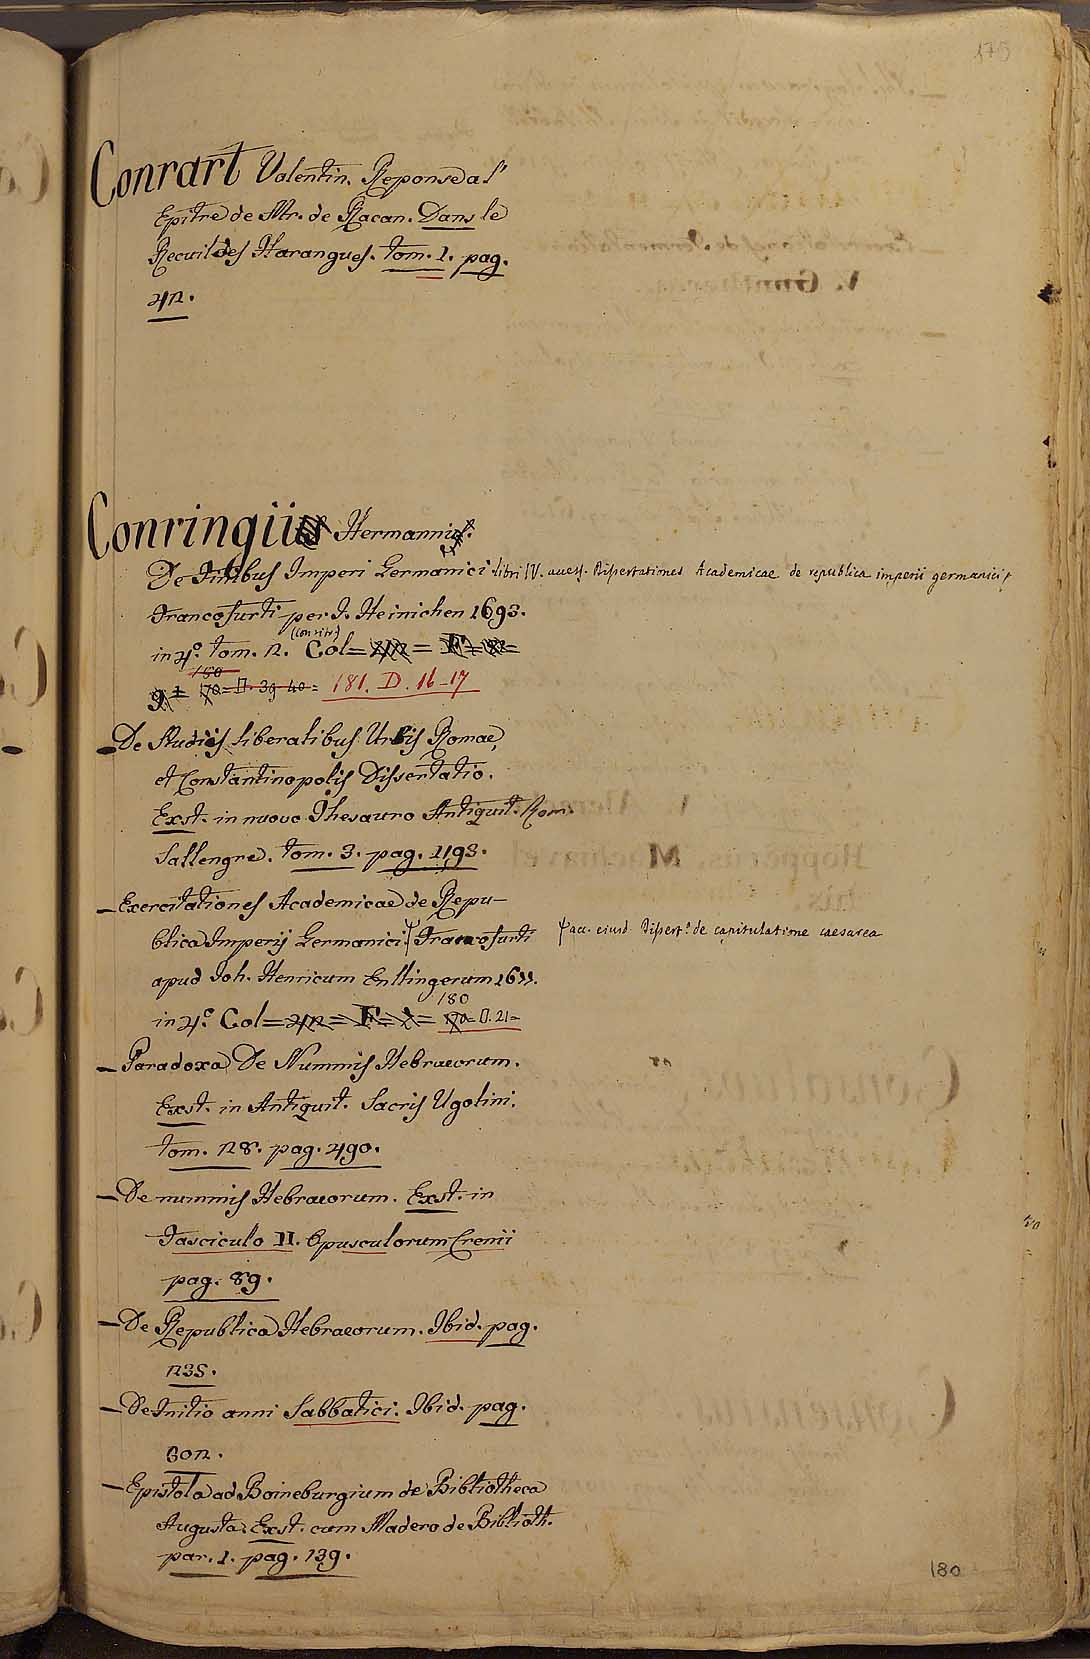 175
Conrart Valentin. Reponse a l'
Epitre de Mr. de Racan. Dans le
Recuil des Harangues. tom. 1. pag.
42.
Conringii Hermanni.
De Finibus Imperi Germanici libri IV. Dissertationes Academicae de republica imperii germanici
Francofurti per J. Heinichen 1693.
in 4.º tom. 2. Col=
180
170=D. 39 40= 181. D. 16-17
De Studiis liberalibus Urbis Romae,
et Constantinopolis Dissertatio.
Exst. in nuovo Thesauro Antiquit. Rom.
Sallengre. tom. 3. pag. 1193.
Exercitationes Academicae de Repu-
blica Imperij Germanici. Francofurti acc. eiusd. Dissert. de capitulatione caesarea
apud Joh. Henricum Enllingerum
180
in 4.º Col=42=F= 170=D. 21=
Paradoxa De Nummis Hebraeorum.
Exst. in Antiquit. Sacris Ugolini.
tom. 28. pag. 490.
De nummis Hebraeorum. Exst. in
Fasciculo II. Opusculorum Crenii
pag. 89.
De Republica Hebraeorum. Ibid. pag.
235.
De Initio anni Sabbatici. Ibid. pag.
302.
Epistola ad Boineburgium de Bibliotheca
Augusta. Exst. cum Madero de Biblioth.
par. 1. pag. 139.
180